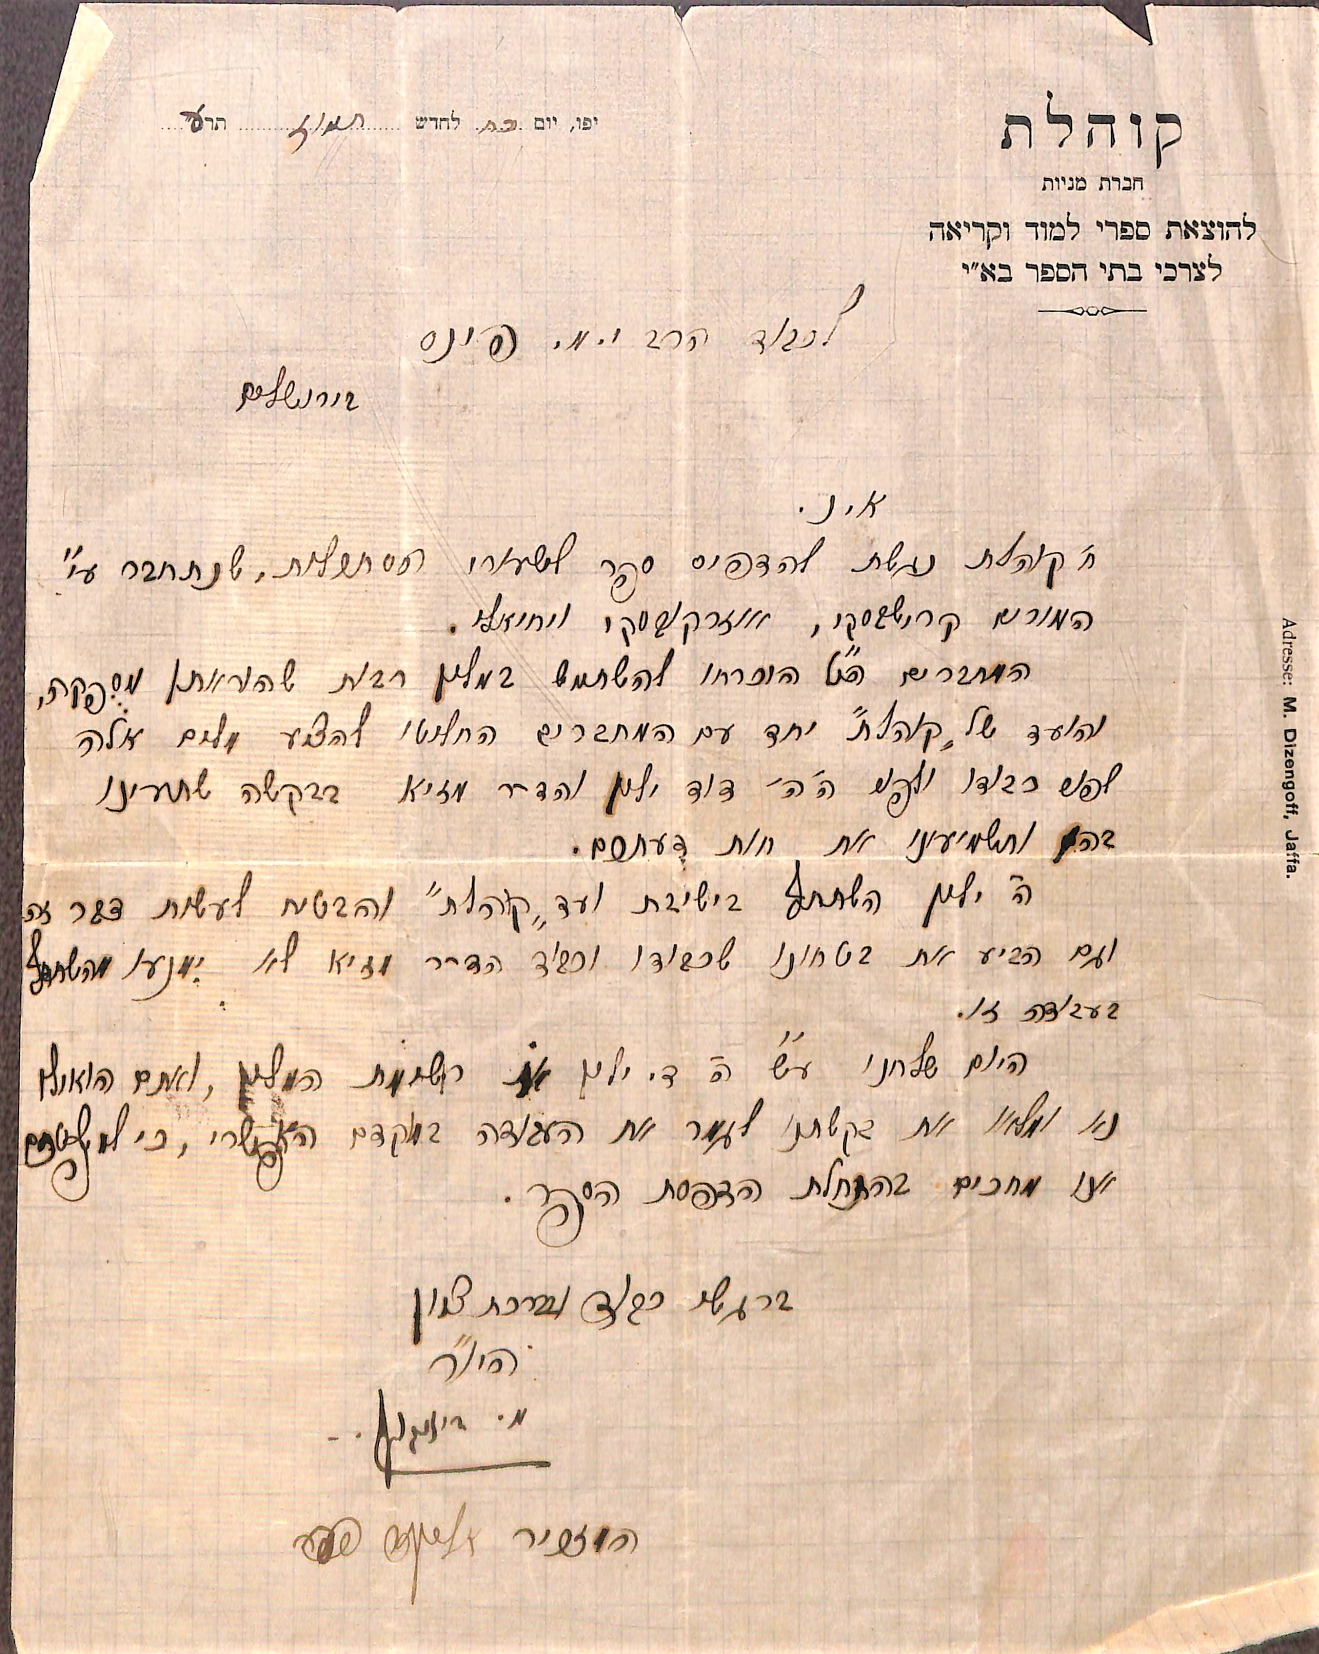 קוהלת
חברת מניות
להוצאת ספרי למוד וקריאה
לצרכי בתי הספר בא״י
יפו, יום כח לחדש תמוז תרע
Adresse: M. Dizengoff, Jaffa.
לכבוד הרב י. מ. פינס
בירושלים
א. נ.
ח׳ קוהלת נגשת להדפיס ספר לשעורי הסתכלות, שנתחבר ע״י
המורים קרישבסקי, אוזרקובסקי ויחיאלי.
המחברים הנ״ל הוכרחו להשתמש במלים רבות שהוראתן מסֻפקה,
והועד של „קוהלת״ יחד עם המחברים החליטו להציע מלים אלה
לפני כבודו ולפני ה״ה דוד ילין והד״ר מזיא בבקשה שתעיינו
בהן ותשמיעונו את חות דעתכם.
ה׳ ילין השתתף בישיבת ועד „קוהלת״ והבטיח לעשות דבר זה
וגם הביע את בטחונו שכבודו וכבוד הד״ר מזיא לא ימנעו מהשתתף
בעבודה זו.
היום שלחנו ע״ש ה׳ ד. ילין את רשימת המלים, ואתם הואילו
נא ומלאו את בקשתנו לגמר את העבודה במקדם האפשרי, כי
אנו מחכים בהתחלת הדפסת הספר.
ברגשי כבוד וברכת ציון
היו״ר
מ. דיזנגוף
המזכיר